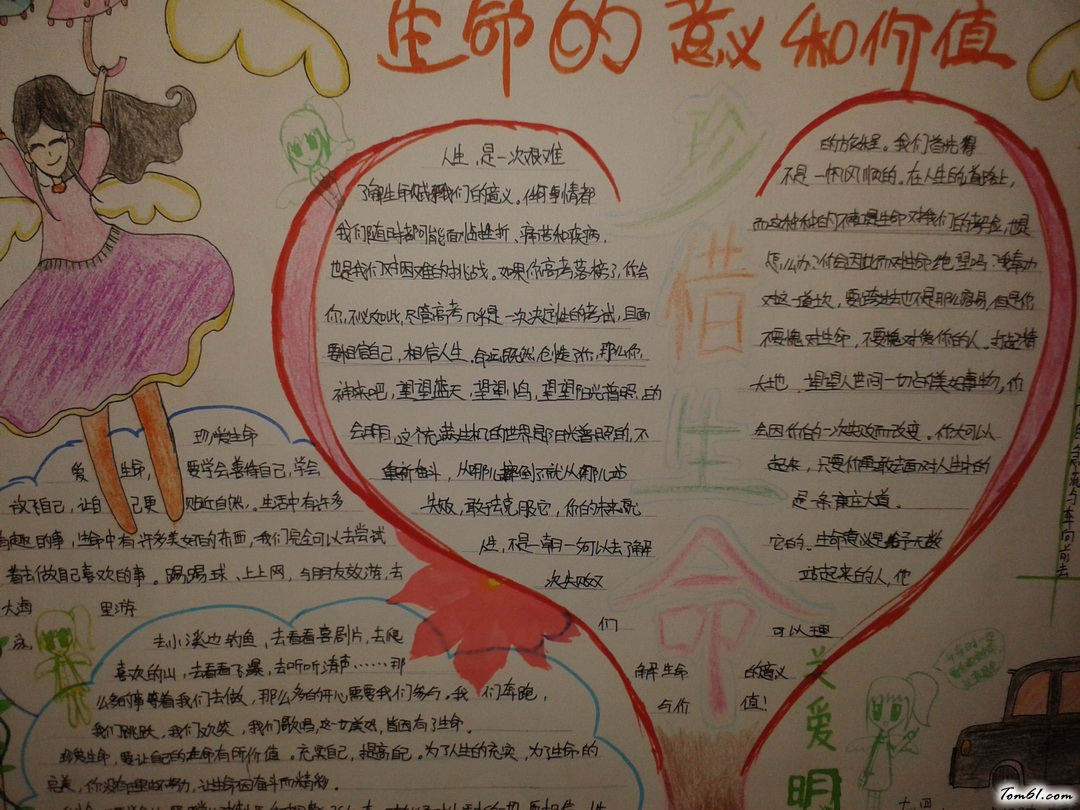 生命的意义和价值
珍惜生命
人生,是一次极难
的旅程。我们首先得
了解生命赋予我们的意义。任何事情都
不是一帆风顺的,在人生的道路上,
我们随时都可能面临挫折、痛苦和疾病,
而这种种的不幸是生命对我们的考验,也是
也是我们对困难的挑战。如果你高考落榜了,你会
怎么办?你会因此而对生命绝望吗?
你,不必如此,尽管高考几乎是一次决定性的考试,且面
对这一道坎,要跨过去也不是那么容易,但是你
要相信自己,相信人生。命运既然创造了你,那么你
不要愧对生命,不要愧对爱你的人,打起精
神来吧,望望蓝天,望望小鸟,望望阳光普照的
大地,望望人世间一切占美好事物,你
会明白,这个充满生机的世界是阳光普照的,不
会因你的一次失败而改变。你大可以
重新奋斗,从哪儿摔倒了就从哪儿站
起来,只要你勇敢去面对人生中的
失败,敢于克服它,你的未来就
是一条康庄大道。
人生,不是一朝一夕可以去了解
它的,生命意义是给予无数
次失败又
站起来的人,他
们
可以理
解生命
的意义
与价
值!
珍爱生命
爱 生命,要学会善待自己,学会
放松自己,让自己更贴近自然。生活中有许多
有趣的事,生命中有许多美好的东西,我们完全可以去尝试
着去做自己喜欢的事。踢踢球、上上网,与朋友
大海里游
泳,去小溪边钓鱼,去看看喜剧片,去爬
喜欢的山,去看看飞瀑,去听听涛声……那
么多的事等着我们去做,那么多的开心需要我们参与。我们奔跑,
我们跳跃,我们欢笑,我们歌唱,这一切美好,皆因有了生命。
珍爱生命,要让自己的生命有所价值。充实自己,提高自己。为了人生的充实,为了生命的
完美,你没有理由不努力,让生命因奋斗而精彩。
关爱
明
Tom61.com